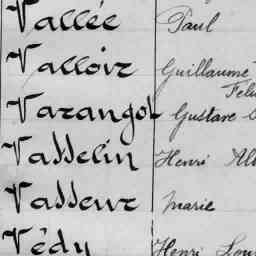 Vallée Paul
Valloir Guillaume
Varangot Gustave
Vasselin Henri
Vasseur Marie
Védy Henri